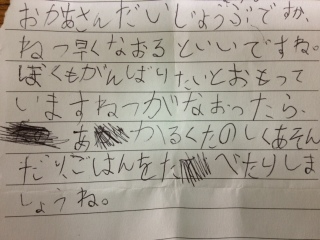 おかあさんだいじょうぶですか、
ねつ早くなおるといいですね。
ぼくもがんばりたいとおもって
いますねつがなおったら、
あかるくたのしくあそん
だりごはんをたべたりしま
しょうね。